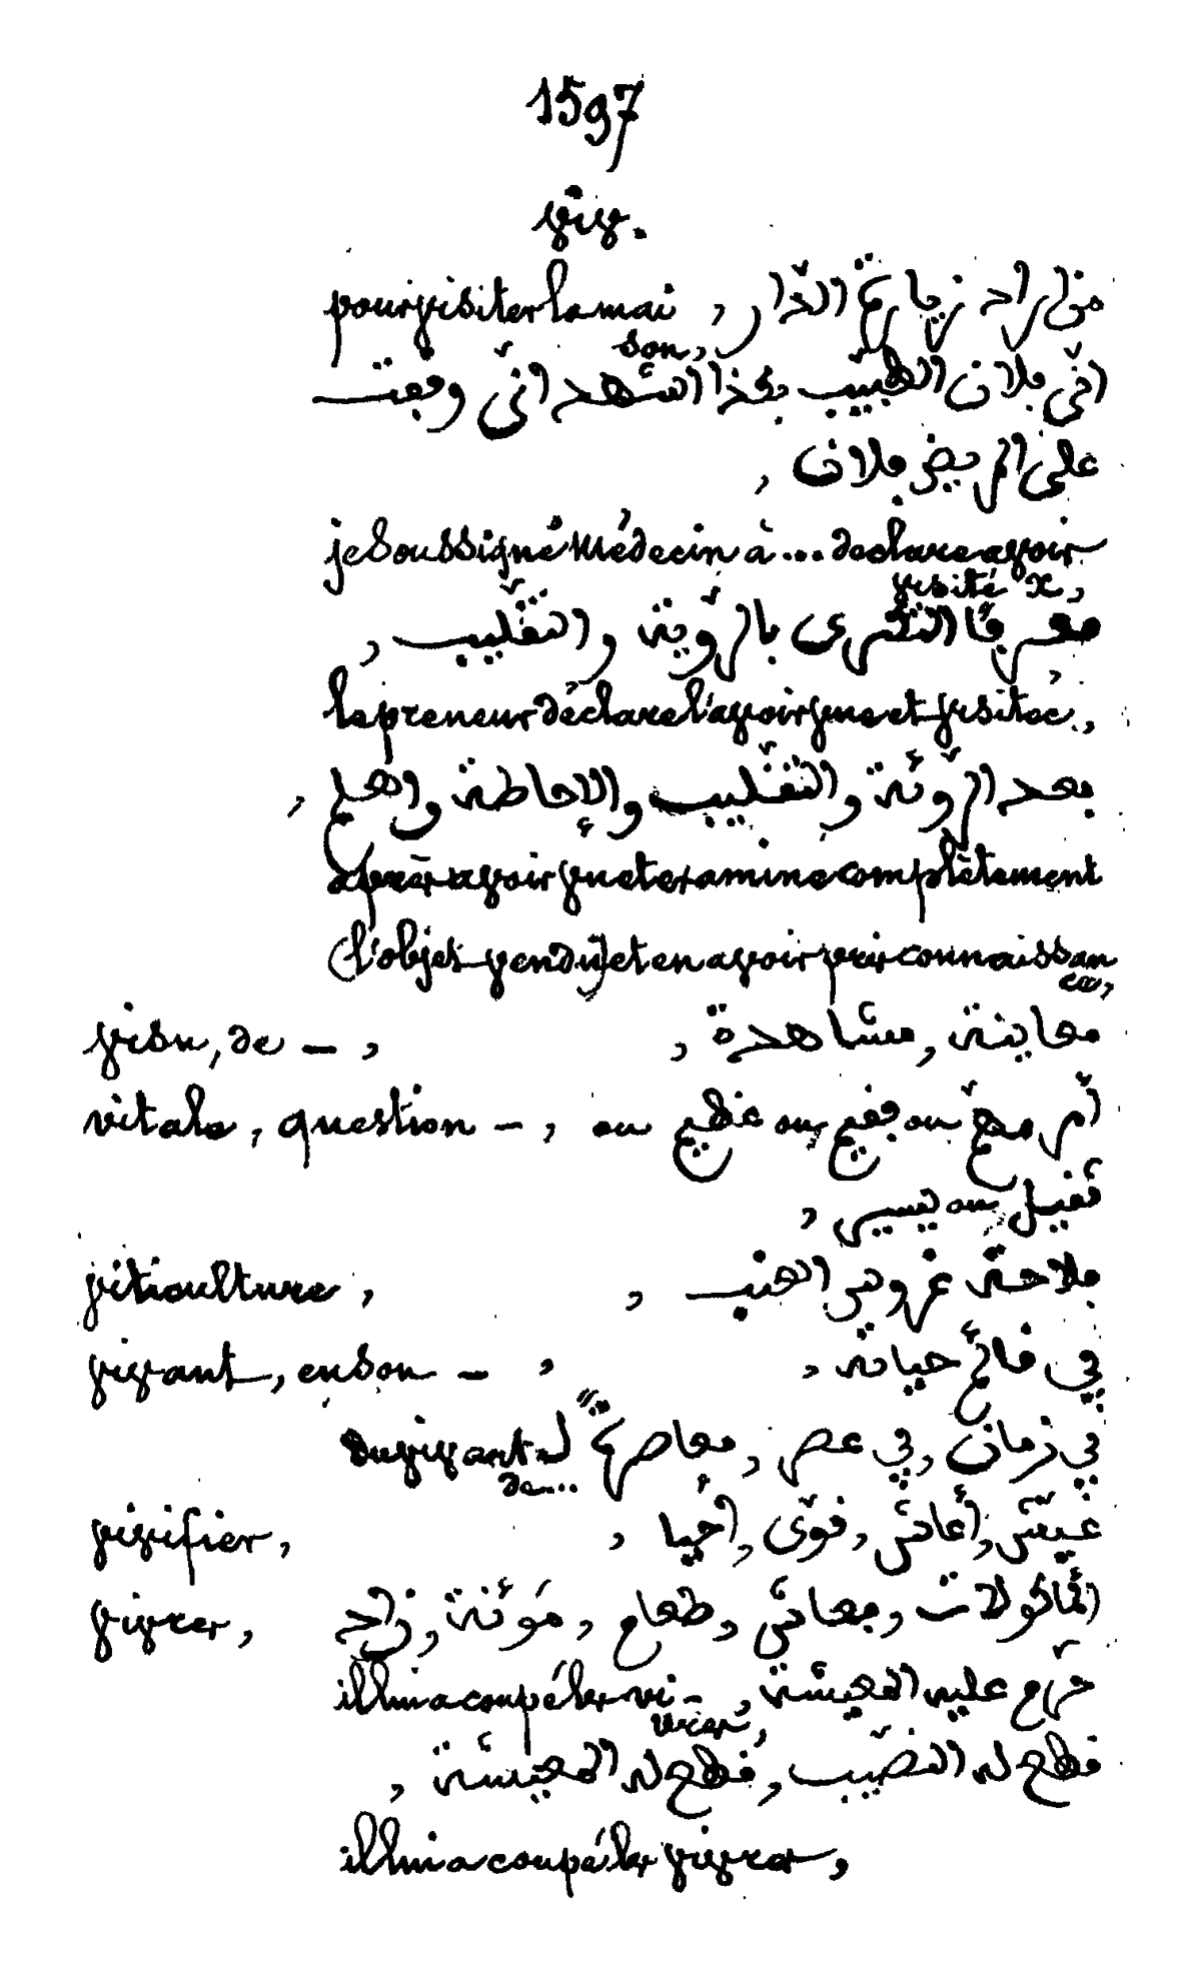 1597
viv.
من اراد زيارة الدّار, pour visiter la mai
son,
انّي فلان الطّبيب بهذا اشهد انّي وقفت
على المريض فلان,
je soussigné Médecin à... déclare avoir
visité X,
معرفا المشترى بالرّوية والتقّليب,
le preneur déclare l'avoir vue et visitée,
بعد الرّوئة والتقّليب والإحاطة واهلع,
après avoir vu et examiné complètement
(l'objet vendu) et en avoir pris connaissan
ce,
visu, de —, معاينة, مشاهدة,
vitale, question —, أمر مهمّ ou فقيم ou عظيم
ثقيل ou يسير,
viticulture, فلاحة غروس العنب,
vivant, en son —, في قائم حياته,
في زمان, في عصر, معاصرةً لـ du vivant
de...
vivifier, عيّش, أعاش, قوّى, أحيا,
vivres, المأكولات, معاش, طعام, مَوئنة, زاد
حرّم عليه المعيشة, il lui a coupé les vi-
vres,
قطع له القضيب, قطع له المعيشة,
il lui a coupé les vivres,